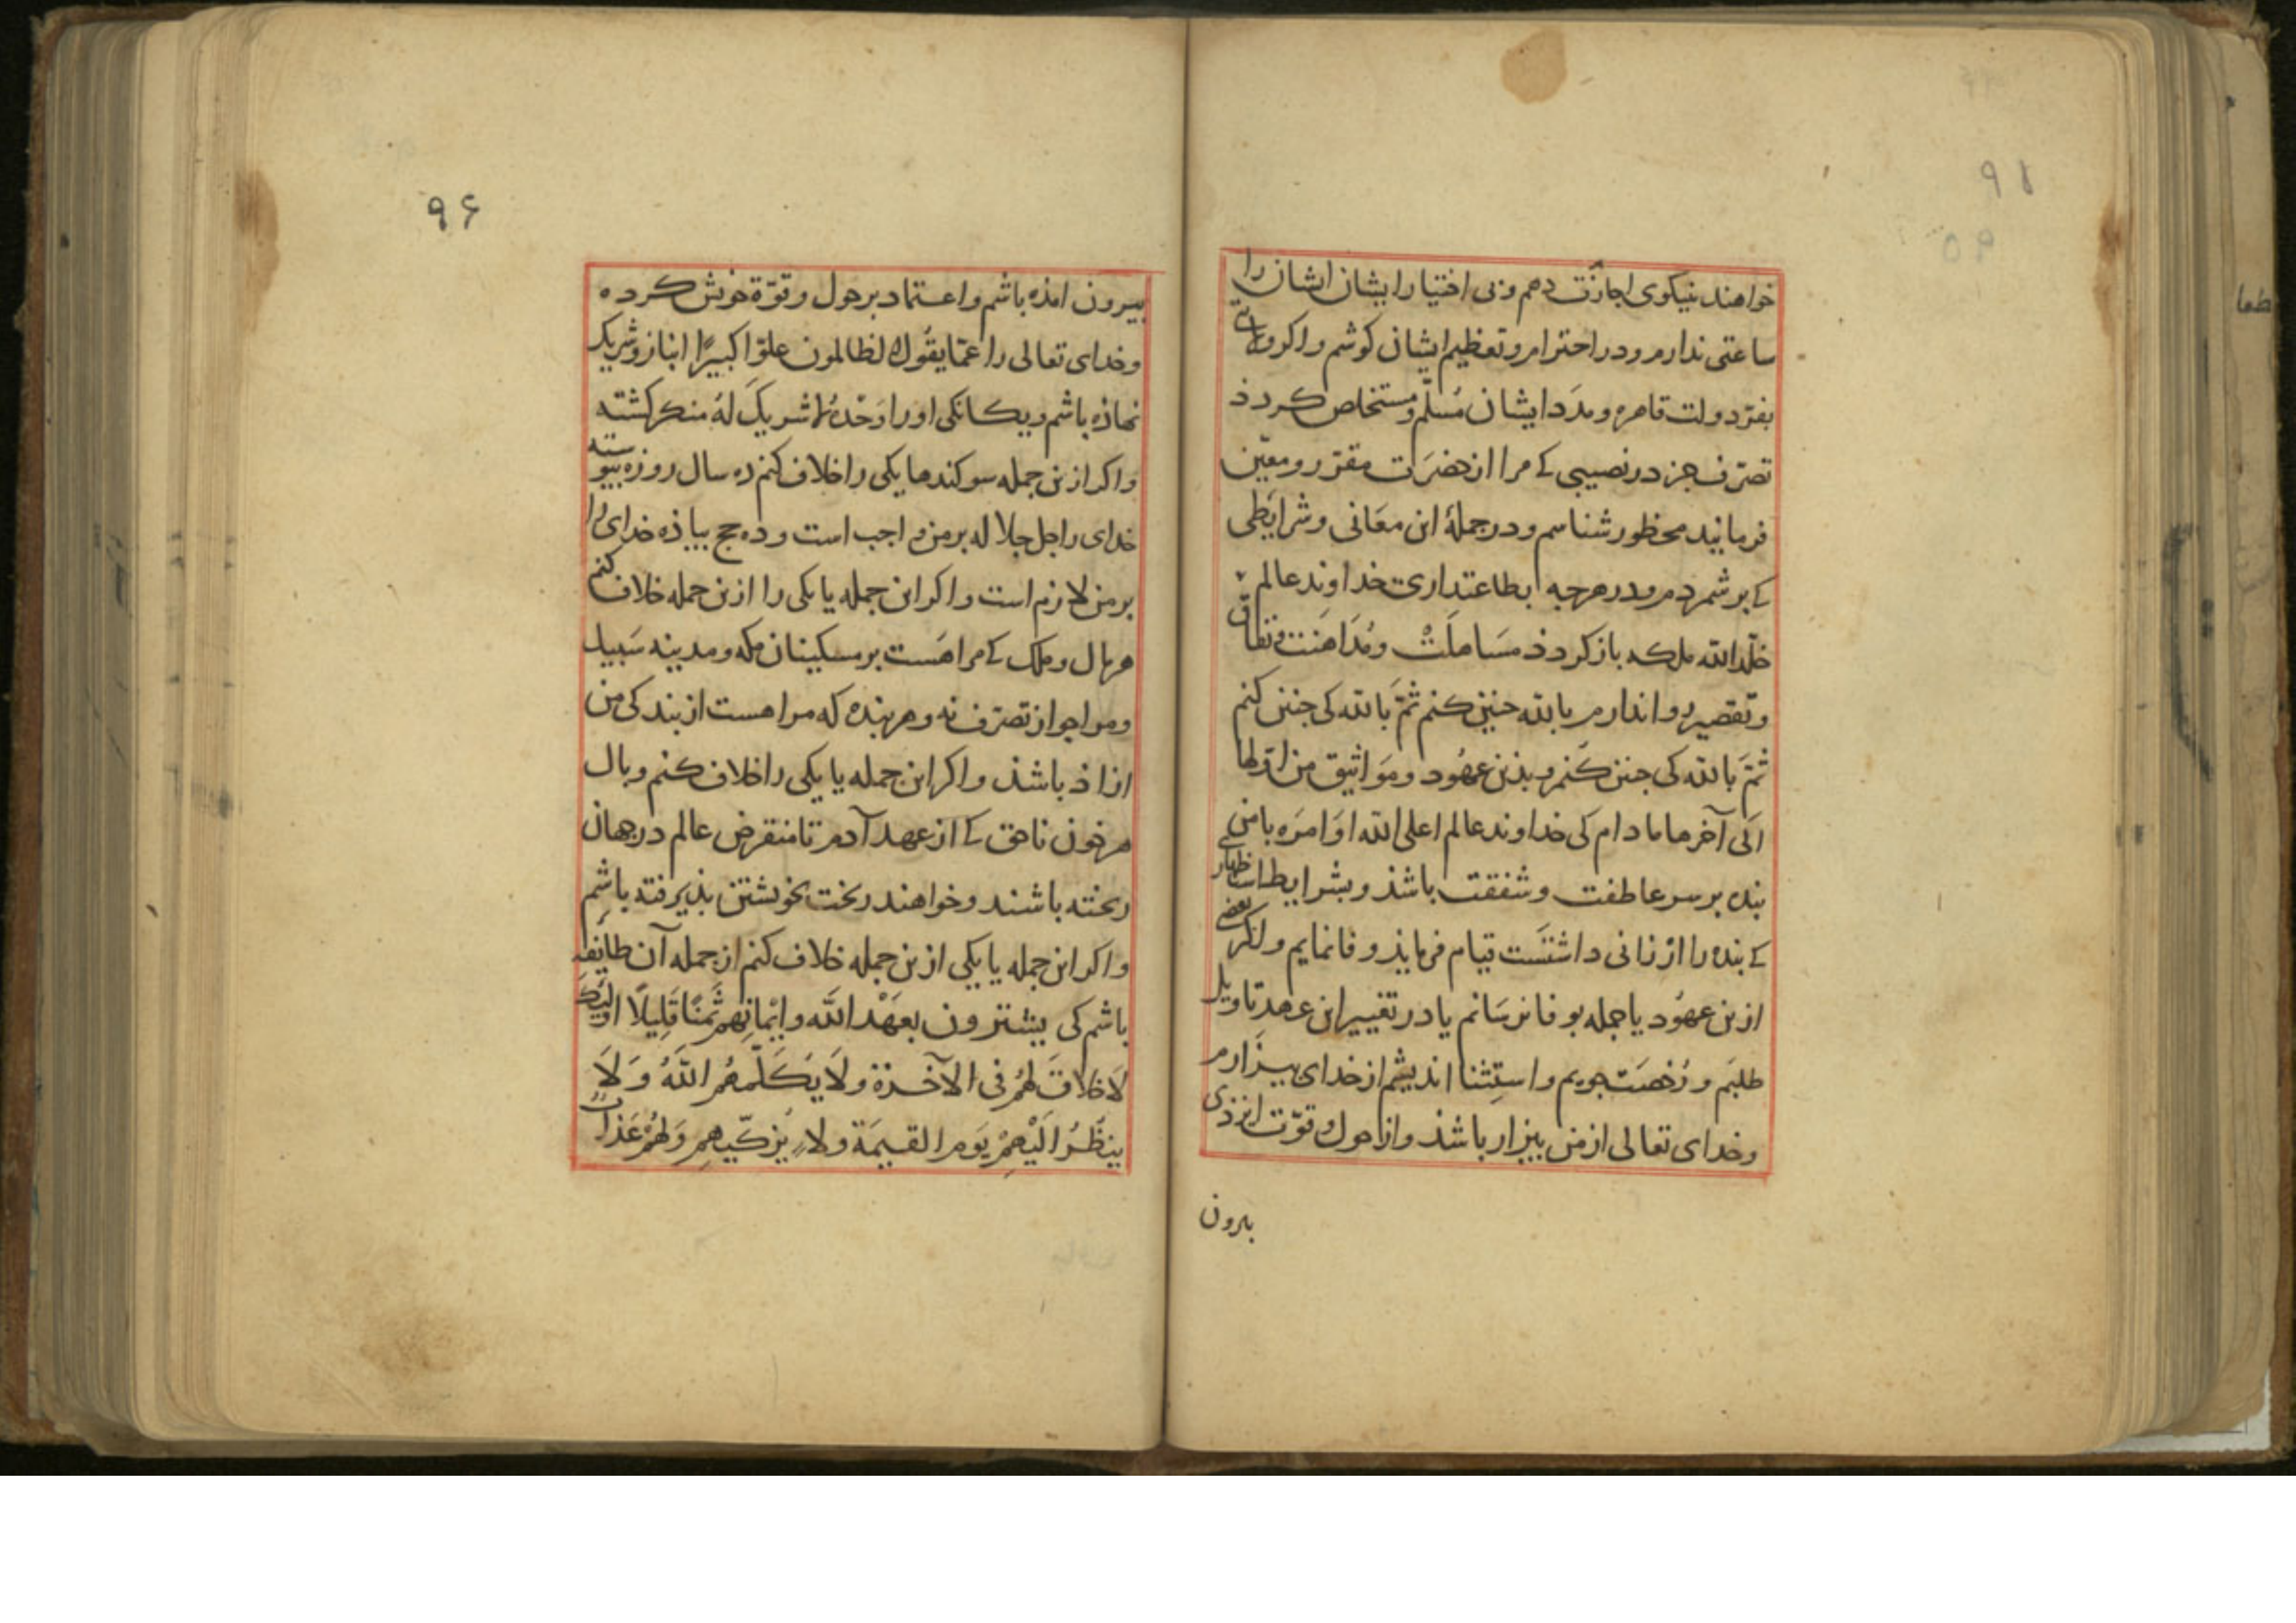 ۹۵
خواهند بنیکوی اجازت دهم و بی اختیار ایشان ایشان را
ساعتی ندارم و در احترام و تعظیم ایشان کوشم و اکر ولایات
بفرّ دولت قاهره و مدَد ایشان مُسلّم و مستخلص کردد
تصرّف جز در نصیبی کے مرا از حضرَت مقرّر و معیّن
فرمایند محظور شناسم و در جملهٔ این معَانی و شرایطی
کے بر شمردم و در هرچه بطاعتداری خداوند عالم
خلّد الله ملکه باز کردد مسَاهلَت ومُدَاهنت و نفاق
و تقصیر روا ندارم بالله جنین کنم ثمّ بالله کی جنین کنم
ثمّ بالله کی جنین کنم و بذین عهُود و مَواثیق من اوّلها
الی آخرها ما دام کی خداوند عالم اعلی الله اوَامرَه با من
بنده بر سر عاطفت و شفقت باشذ و بشرایط استظهار
کے بنده را ارزانی داشتست قیام فرمایذ وفا نمایم و اکر بعضی
ازین عهُود یا جمله بوفا نرسَانم یا در تغییر این عهد تاویل
طلبَم و رُخصَت جویم و استِثنا اندیشم از خدای بیزارم
وخدای تعالی از من بیزار باشذ و از حول و قوّت ایزدی
بیرون
۹۶
بیرون امذه باشم و اعتماد بر حول و قوّة خویش کرده
وخدای تعالی را عمّا یقُول الظالمون علوّا کبیرًا انباز و شریک
نهاذه باشم و یکانکی او را وَحْدهُ لا شریکَ لهُ منکر کشته
و اکر ازین جمله سوکندها یکی را خلاف کنم ده سال روزه پیوسته
خدای را جل جلاله بر من واجب است و ده حج بیاذه خدای را
بر من لازم است و اکر این جمله یا یکی را ازین جمله خلاف کنم
هر مال و ملک کے مرا هَست بر مسکینان مکه و مدینه سَبیل
و مرا جواز تصرّف نه و هر بنده که مرا هست از بندکی من
ازاذ باشذ و اکر این جمله یا یکی را خلاف کنم وبال
هر خون ناحق کے از عهد آدم تا منقرض عالم در جهان
ریخته باشند و خواهند ریخت بخویشتن بذیرفته باشم
و اکر این جمله یا یکی ازین جمله خلاف کنم از جمله آن طایَفه
باشم کی یشترون بعَهْد اللّه وایْمانِهم ثَمنًا قَلِیلًا اولئِکَ
لَا خلاقَ لهُمْ فی الآخرة ولَا یُکَلّمهُم اللّهُ وَلَا
ینظُرُ الَیْهمْ یَوم القیمَة ولا یُزکّیهِم وَلهُمْ عَذابٌ